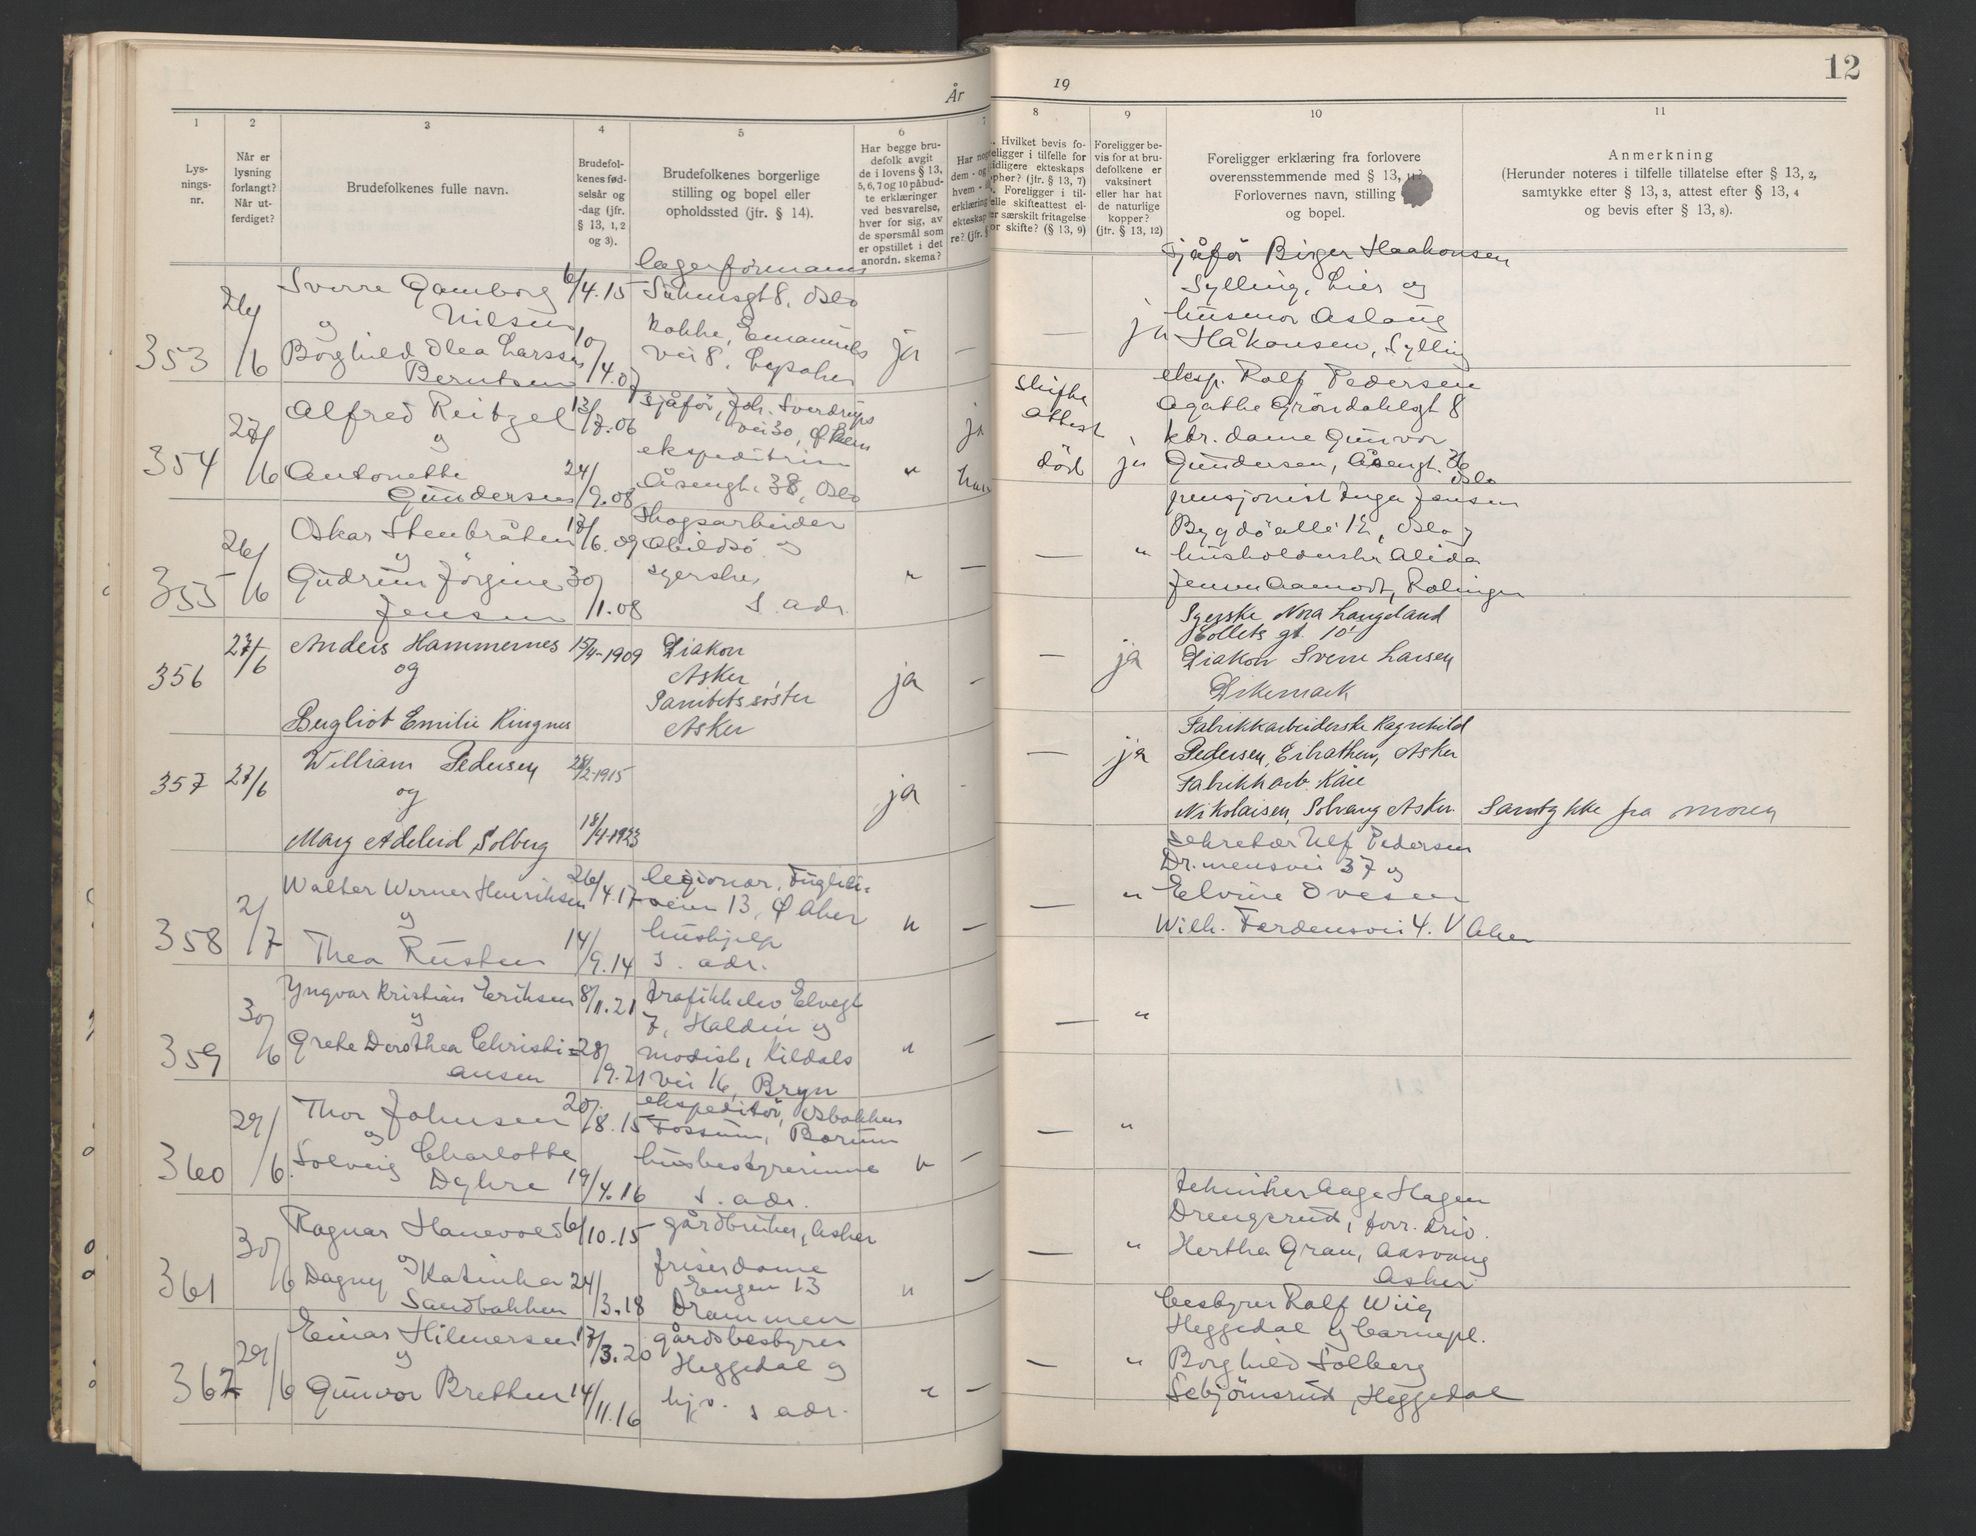 År
19
12
1
2
3
4
5
6
7
8
9
10
11
Lys-
nings-
nr.
Når er
lysning
forlangt?
Når ut-
ferdiget?
Brudefolkenes fulle navn.
Brudefol-
kenes fød-
selsår og
-dag (jfr.
§ 13, 1, 2
og 3).
Brudefolkenes borgerlige
stilling og bopel eller
opholdssted (jfr. § 14).
Har begge bru-
defolk avgit
de i lovens § 13,
5, 6, 7 og 10 påbud-
te erklæringer
ved besvarelse,
hver for sig, av
de spørsmål som
er opstillet i det
anordn. skema?
Har nog
dem - og
hvem -
erklæring
ekteskap
re? (jfr. §
Hvilket bevis fo-
religger i tilfelle for
tidligere ekteskaps
opher? (jfr. § 13, 7)
Foreligger i til-
felle skifteattest el-
er særskilt fritagelse
or skifte? (§ 13, 9)
Foreligger be-
vis for at bru-
defolkene er
vaksinert
eller har hat
de naturlige
kopper?
(jfr. § 13, 12)
Foreligger erklæring fra forlovere
overensstemmende med § 13, 11?
Forlovernes navn, stilling
og bopel.
Anmerkning
(Herunder noteres i tilfelle tillatelse efter § 13, 2,
samtykke efter § 13, 3, attest efter § 13, 4
og bevis efter § 13, 8).
353
26/6
Sverre Gamborg
Nilsen
og
Borghild Olea Larssen
Berntsen
6/4.15
10/4.07
lagerformann
8, Oslo
kokke, Emanuels
vei 8, Lysaker
ja
—
—
ja
sjåför Birger Haakonsen
Sylling, Lier og
husmor Aslaug
Håkonsen, Sylling
354
27/6
Alfred Reitzel
og
Antonette
Gundersen
13/7.06
24/9.08
sjåför, Joh. Sverdrups
vei 30, Ø Aker
ekspeditrise
Åsengt. 38, Oslo
"
ja
skifte
attest
död
ja
eksp. Rolf Pedersen
Agathe Gröndahlsgt 8
ktr. dame Gunvor
Gundersen, Åsengt. 36
Oslo
355
26/6
Oskar Stenbråten
og
Gudrun Jörgine
Jensen
18/6.09
30/1.08
Skogsarbeider
Abildsö og
syerske,
s. adr.
"
—
—
"
pensjonist Inga Jensen
Bygdö alle 12, Oslo og
husholderske Alida
Jensen Aamodt, Rælingen
356
27/6
Anders Hammernes
og
Bergliot Emilie Ringnes
15/4-1909
Diakon
Asker
Sanitetssöster
Asker
ja
-
—
ja
Syerske Nora Langeland
Collets gt. 10
Diakon Sverre Larsen
Dikemark
357
27/6
William Pedersen
og
Mary Adeleid Solberg
28/2-1915
18/4-1923
ja
-
—
ja
Fabrikkarbeiderske Ragnhild
Pedersen, Asker
Fabrikkarb. Kåre
Nikolaisen, Solvang Asker.
Samtykke fra moren
358
2/7
Walter Werner Henriksen
og
Thea Rusten
26/4.17
14/9.14
legionær, Fuglelia-
veien 13, Ø Aker
hushjelp
s. adr.
"
—
—
"
sekretær Ulf Pedersen
Dr.mensvei 37 og
Elvine Ovesen
Wilh. Færdensvei 4. V Aker
359
30/6
Yngvar Kristian Eriksen
og
Grete Dorothea Christi=
ansen
8/11.21
28/9.21
trafikkelev Elvegt
7, Halden og
modist, Kildals
vei 16, Bryn
"
—
—
"
360
29/6.
Thor Johnsen
og
Solveig Charlotte
Dyhre
20/8.15
19/4.16
ekspeditör, Osbakken
Fossum, Bærum
husbestyrerinne
s. adr.
"
—
—
"
361
30/6
Ragnar Hanevold
og
Dagny Katinka
Sandbakken
6/10.15
24/3.18
gårdbruker, Asker
friserdame
Engen 13
Drammen
"
—
—
"
tekniker Aage Hagen
Drengsrud, forr. driv.
Hertha Grau, Aasvang
Asker
362
29/6
Einar Hilmersen
og
Gunvor Bretten
17/3.20
14/11.16
gårdsbestyrer
Heggedal og
hjv. s adr.
"
—
—
"
bestyrer Rolf Wiig
Heggedal og barnepl.
Borghild Solberg
Sebjörnsrud, Heggedal